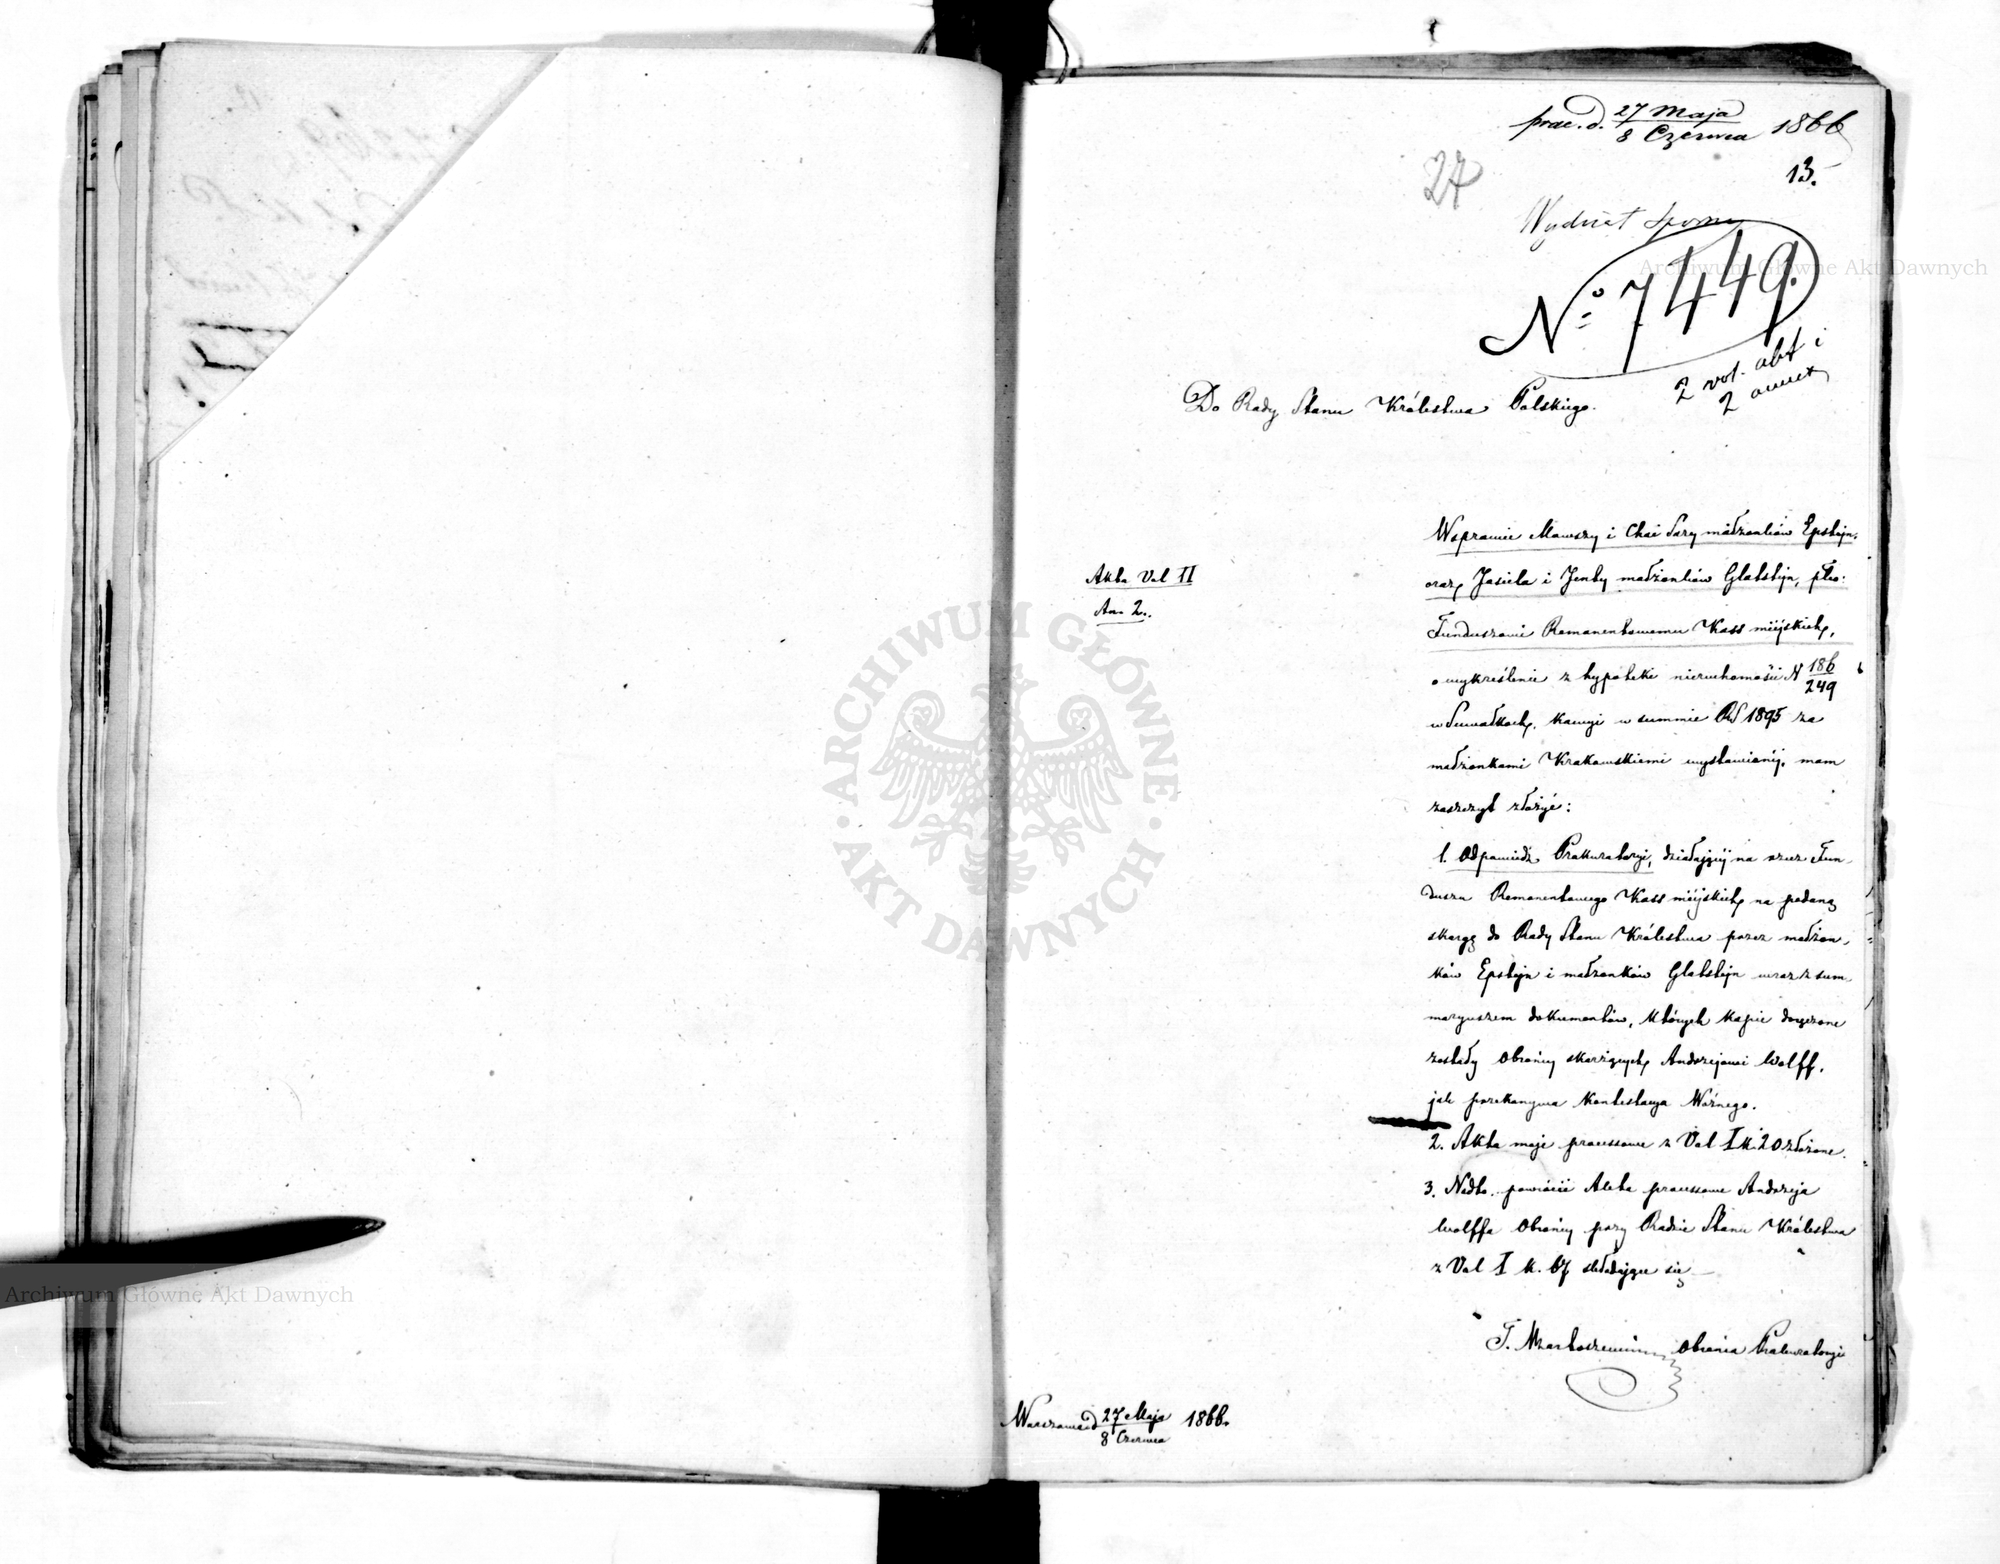 prae. d. 27 Maja / 8 Czerwca 1866
13.
27
Wydział Sporny
No 7449.
2 vol. akt i
2 annex
Do Rady Stanu Królestwa Polskiego.
Akta Vol II
An. 2.
W sprawie Mowszy i Chai Sary małżonków Epsztejn,
oraz Jasiela i Jenty małżonków Glatsztejn, pko:
Funduszowi Remanentowemu Kass miejskich,
o wykreślenie z hypoteki nieruchomości N 186/249
w Suwałkach, kaucyi w summie RS 1895 za
małżonkami Krakowskiemi wystawionéj, mam
zaszczyt złożyć:
1. Odpowiedź Prokuratoryi, działającéj na rzecz Fun-
duszu Remanentowego Kass miejskich na podaną
skargę do Rady Stanu Królestwa przez małżon-
ków Epsztejn i małżonków Glatsztejn wraz z sum-
maryuszem dokumentów, których kopie doręczone
zostały Obrońcy skarżących Andrzejowi Wolff,
jak przekonywa Kontestacya Woźnego.
2. Akta moje processowe z Vol I k. 20 złożone.
3. Nadto powrócić Akta processowe Andrzeja
Wolffa Obrońcy przy Radzie Stanu Królestwa
z Vol I k. 67 składające się
Obrońca Prokuratoryi
Warszawa d 27 Maja / 8 Czerwca 1866.
ARCHIWUM GŁÓWNE AKT DAWNYCH
Archiwum Główne Akt Dawnych
Archiwum Główne Akt Dawnych